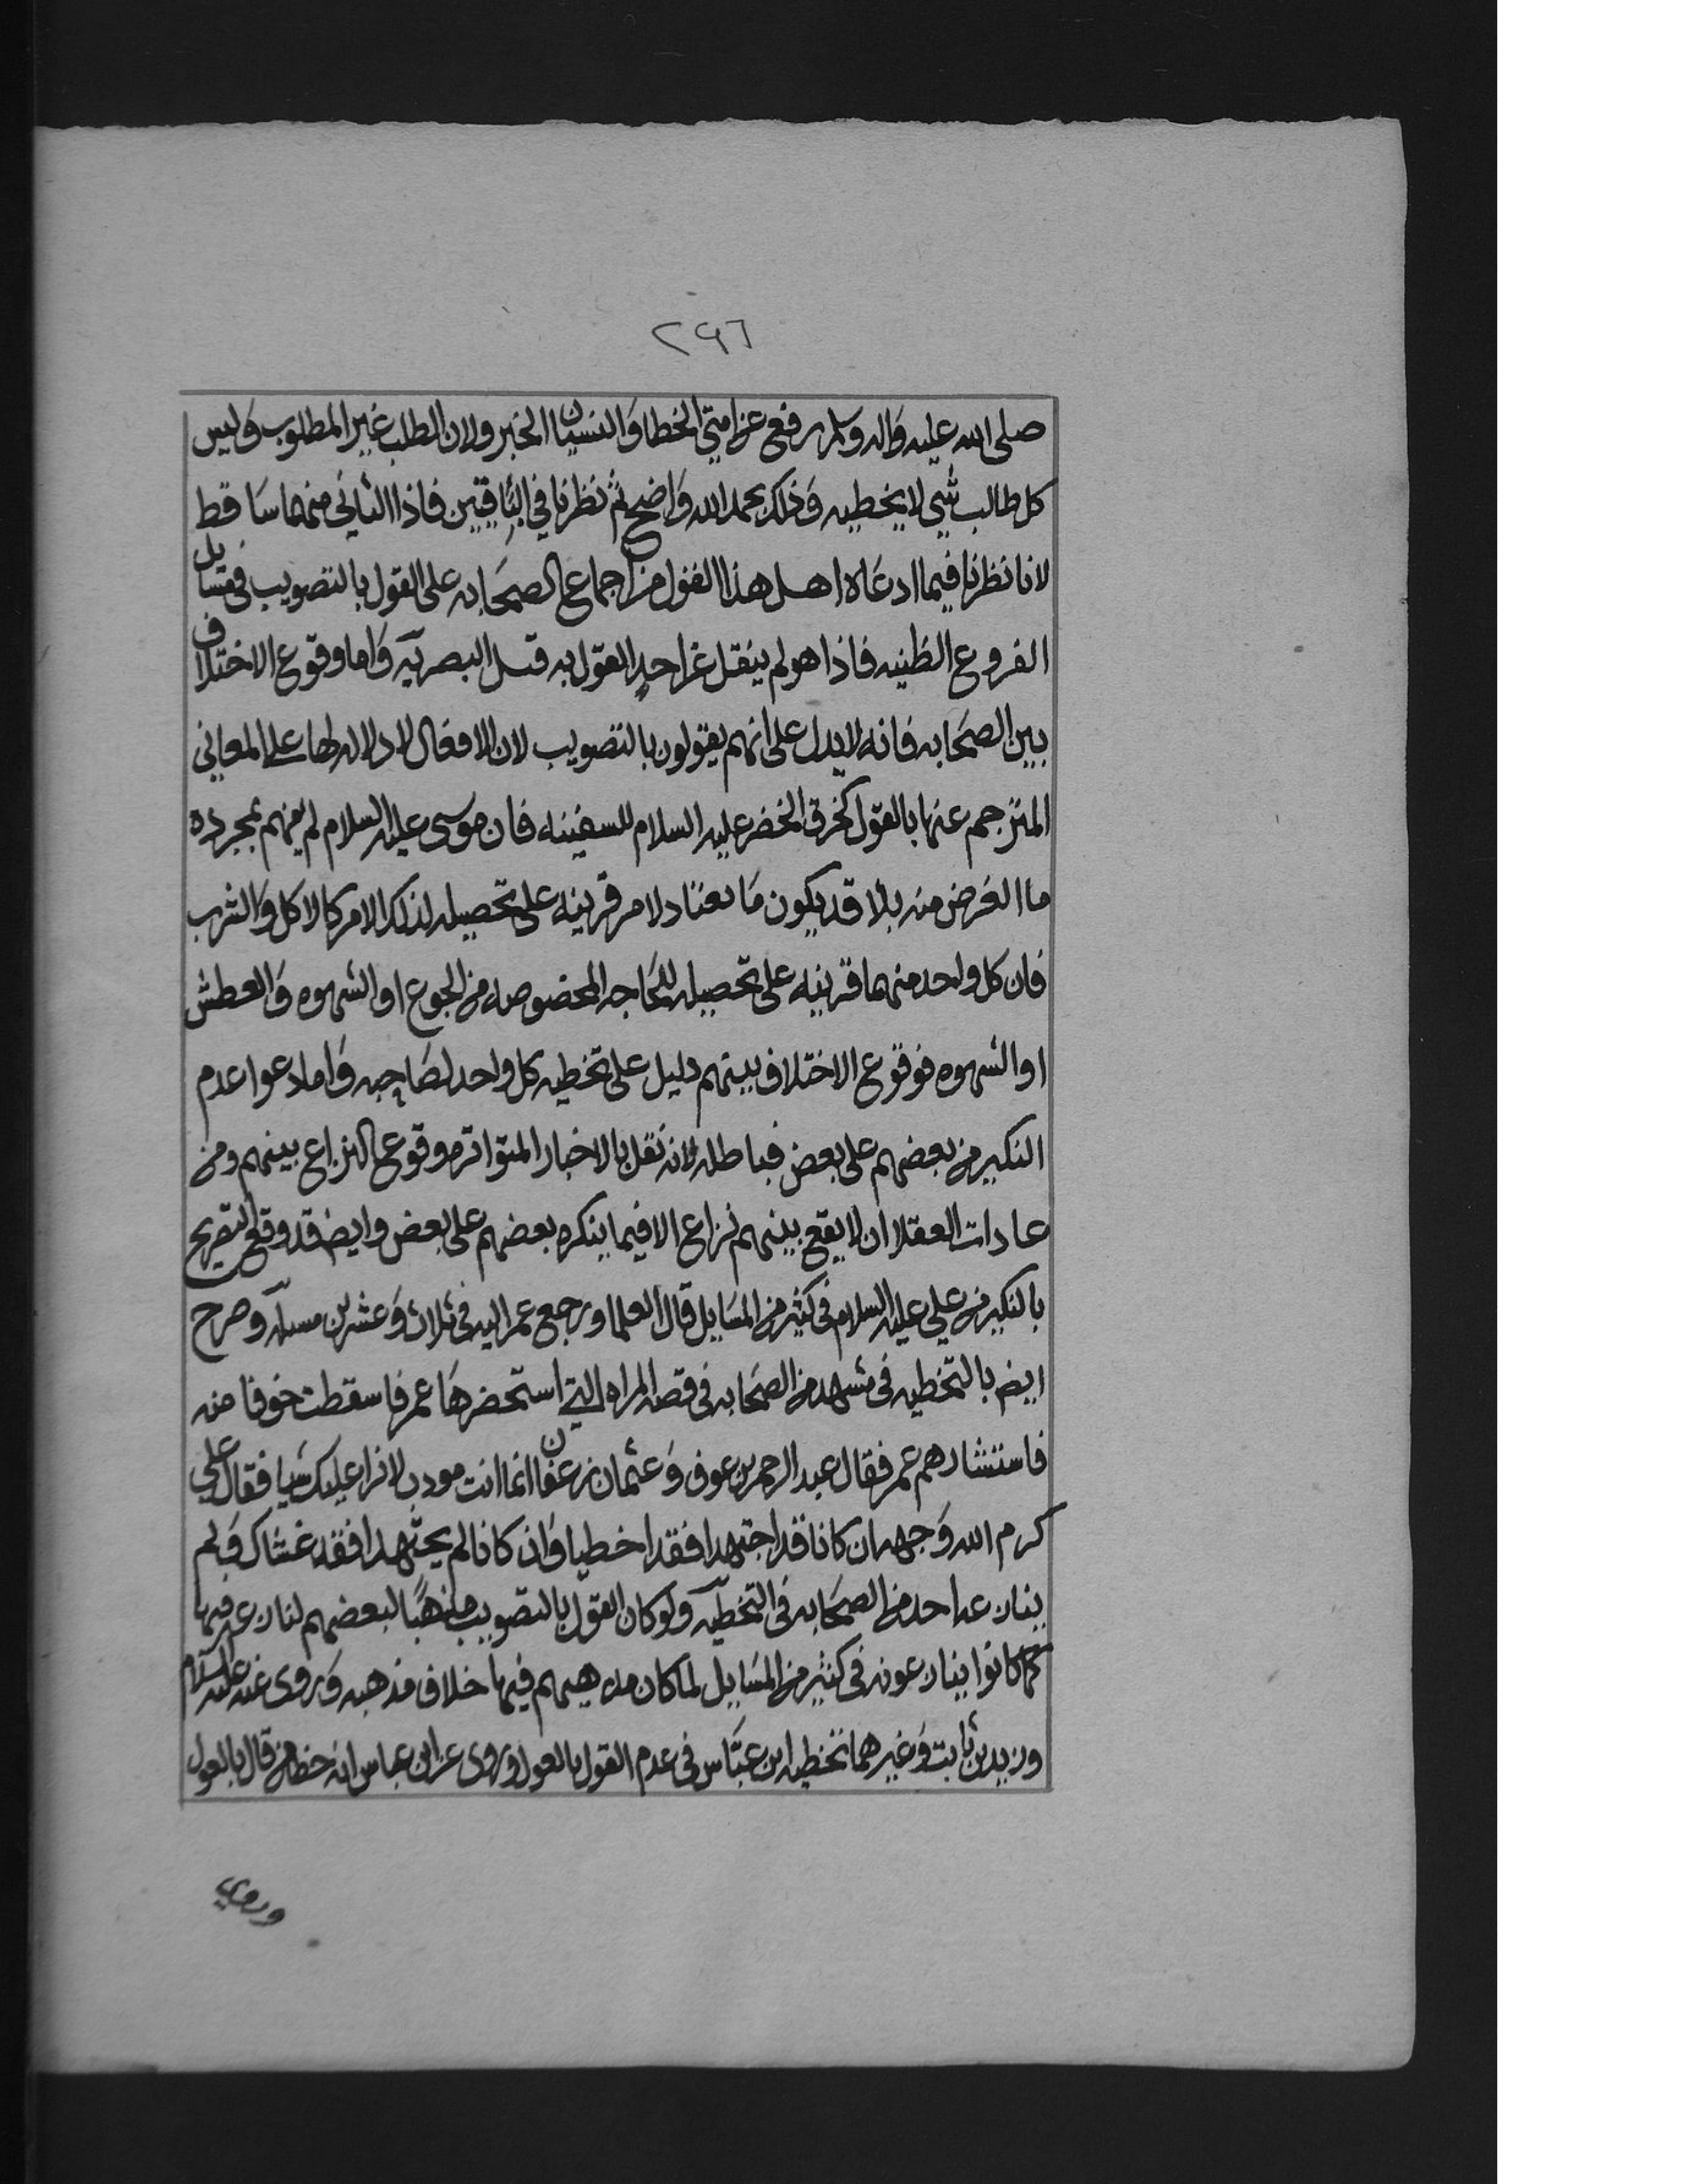 ٢٩٦
صلى الله عليه واله وسلم رفع عن امتي الخطا والنسيان الخبر ولان الطلب غير المطلوب وليس
كل طالب شي لا يخطيه وذلك بحمد الله واضح ثم نظرنا في الباقيين فاذا الثاني منهما ساقط
لانا نظرنا فيما ادعاه اهل هذا القول من اجماع الصحابه على القول بالتصويب في مسايل
الفروع الظنيه فاذا هو لم ينقل عن احد القول به قبل البصريه واما وقوع الاختلاف
بين الصحابه فانه لا يدل على انهم يقولون بالتصويب لان الافعال لا دلاله لها على المعاني
المترجم عنها بالقول كخرق الخضر عليه السلام للسفينه فان موسى عليه السلام لم يفهم بمجرده
ما الغرض منه بلا قد يكون ما يعتاد لامر قرينه على تحصيله لذلك الامر كالاكل والشرب
فان كل واحد منهما قرينه على تحصيله للحاجه المخصوصه من الجوع او الشهوه والعطش
او الشهوه فوقوع الاختلاف بينهم دليل على تخطيه كل واحد لصاحبه واما دعوا عدم
النكير من بعضهم على بعض فباطله لانه نقل بالاخبار المتواتره وقوع النزاع بينهم ومن
عادات العقلا ان لا يقع بينهم نزاع الا فيما ينكره بعضهم على بعض وايضا قد وقع التصريح
بالنكير من علي عليه السلام في كثير من المسايل قال العلما ورجع عمر اليه في ثلاث وعشرين مساله وصرح
ايض بالتخطيه في مشهد من الصحابه في قصه المراه التي استحضرها عمر فاسقطت خوفا منه
فاستشارهم عمر فقال عبد الرحمن بن عوف وعثمان بن عفان انما انت مودب لا نرا عليك شيا فقال علي
كرم الله وجهه ان كانا قد اجتهدا فقد اخطيا وان كانا لم يجتهدا فقد غشاك ولم
ينازعه احد من الصحابه في التخطيه ولو كان القول بالتصويب مذهبًا لبعضهم لنازعه فيها
كما كانوا ينازعونه في كثير من المسايل لما كان مذهبهم فيها خلاف مذهبه وروى عنه عليه السلام
وزيد بن ثابت وغيرهما تخطيه ابن عباس في عدم القول بالعول وروى عن ابن عباس انه خطا من قال بالعول
وروي